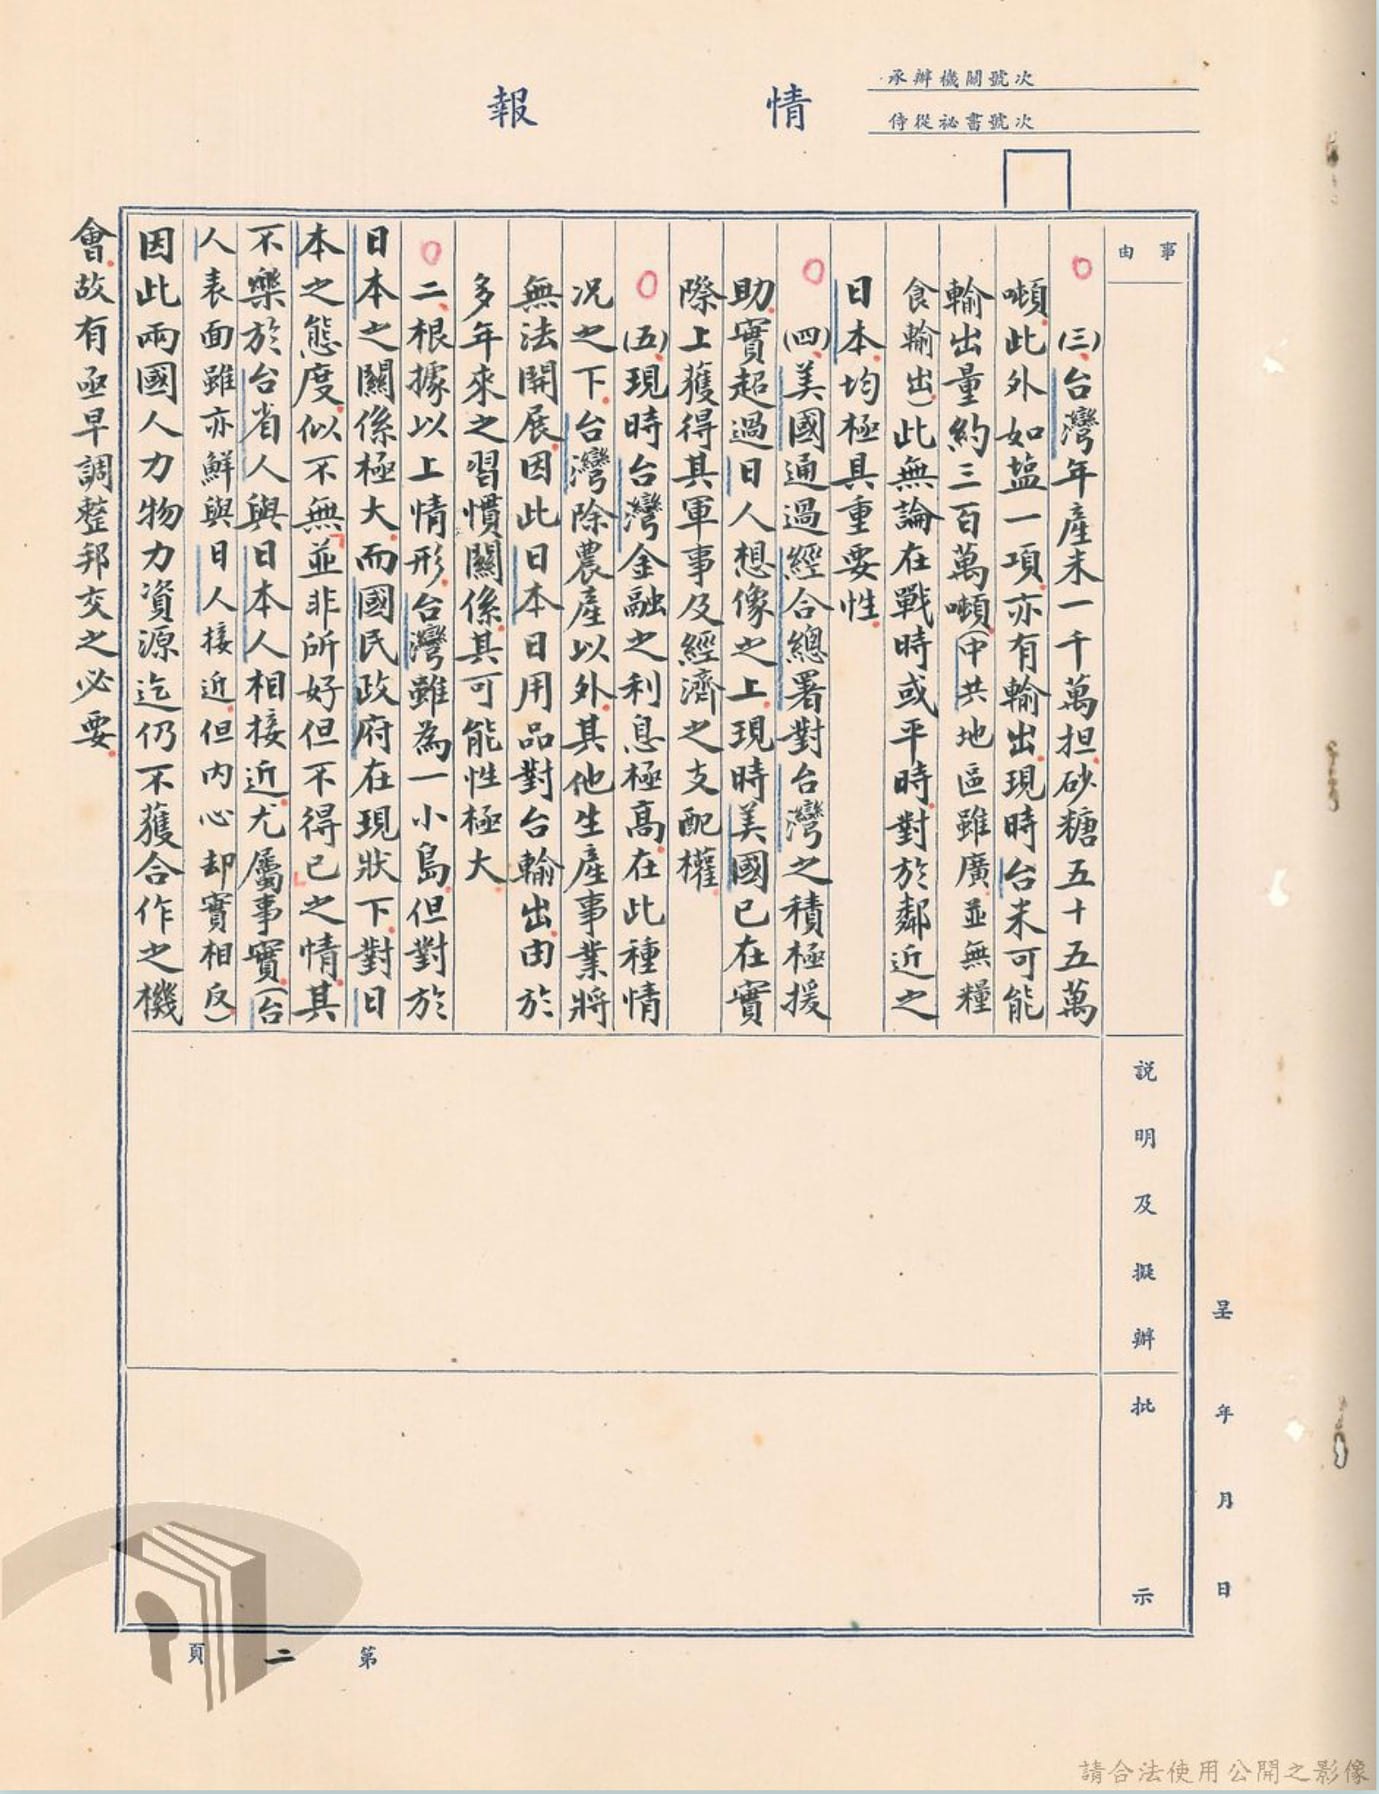 承辦機關號次
侍從祕書號次
情報
事由
(三)、台灣年產米一千萬担、砂糖五十五萬
噸、此外如塩一項、亦有輸出、現時台米可能
輸出量約三百萬噸(中共地區雖廣、並無糧
食輸出)此無論在戰時或平時、對於鄰近之
日本、均極具重要性。
(四)、美國通過經合總署對台灣之積極援
助、實超過日人想像之上、現時美國已在實
際上獲得其軍事及經濟之支配權。
(五)、現時台灣金融之利息極高、在此種情
況之下、台灣除農產以外、其他生產事業將
無法開展、因此日本日用品對台輸出、由於
多年來之習慣關係、其可能性極大。
二、根據以上情形、台灣雖為一小島、但對於
日本之關係極大、而國民政府在現狀下、對日
本之態度、似不無「並非所好但不得已」之情、其
不樂於台省人與日本人相接近、尤屬事實、(台
人表面雖亦鮮與日人接近、但內心却實相反)
因此兩國人力物力資源迄仍不獲合作之機
會、故有亟早調整邦交之必要。
說明及擬辦
批示
呈 年 月 日
第二頁
請合法使用公開之影像